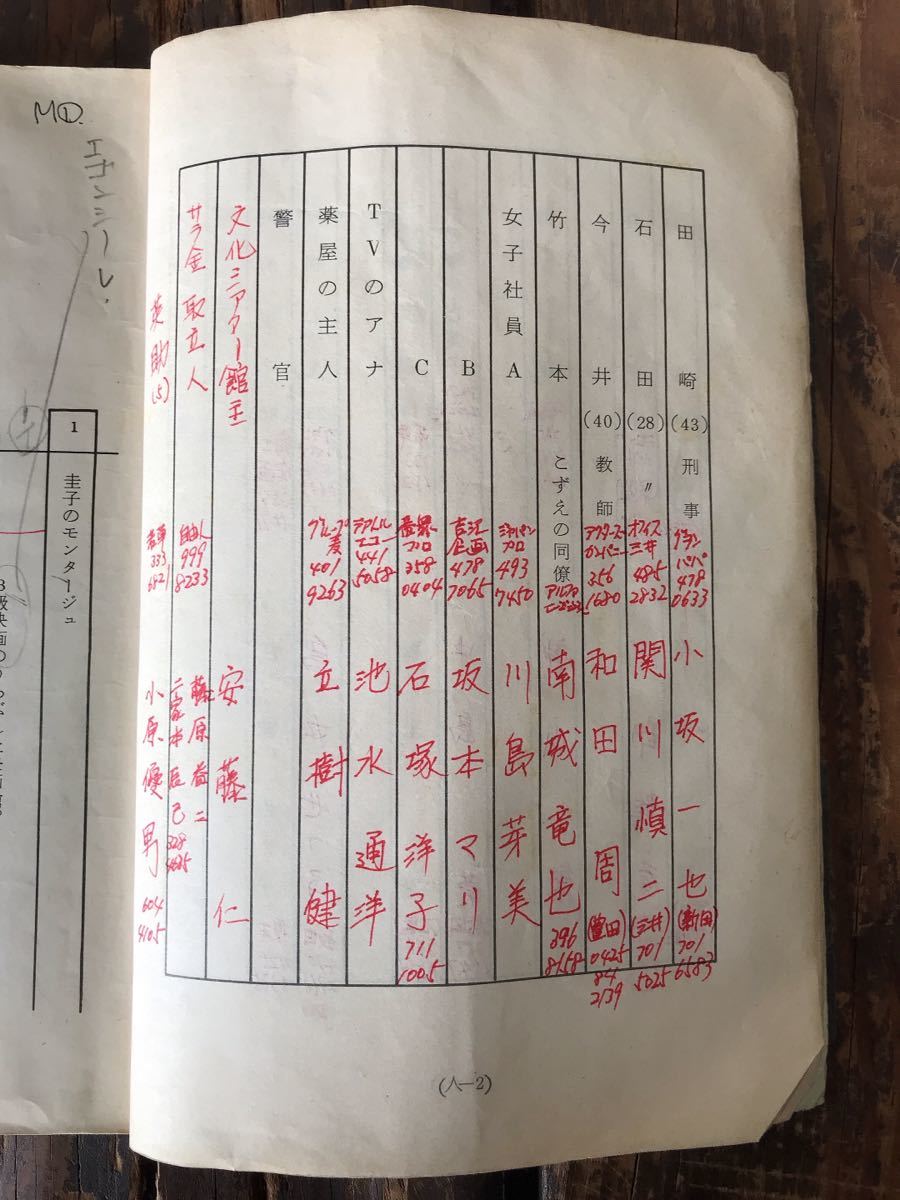 田崎(43)刑事
グランパパ
478
0633
小坂一也
(新田)
701
6583
石田(28)〃
オフィス
三井
485
2832
関川慎二
(三井)
701
5025
今井(40)教師
アクターズ
カンパニー
356
1680
和田周
(豊田)
0425
84
2139
竹本 こずえの同僚
南城竜也
396
8158
女子社員A
ジャパン
プロ
493
7450
川島芽美
B
古江
企画
478
7065
坂本マリ
C
プロ
358
0404
石塚洋子
711
1005
TVのアナ
テアトル
エコー
441
5058
池水通洋
薬屋の主人
グループ
麦
401
9263
立樹健
警官
文化シアター館主
安藤仁
サラ金取立人
自由人
999
8233
藤原益二
二家本辰己
328
4625
英助(5)
若草
333
6821
小原優男
604
4105
(人—2)
MD.
1
圭子のモンタージュ